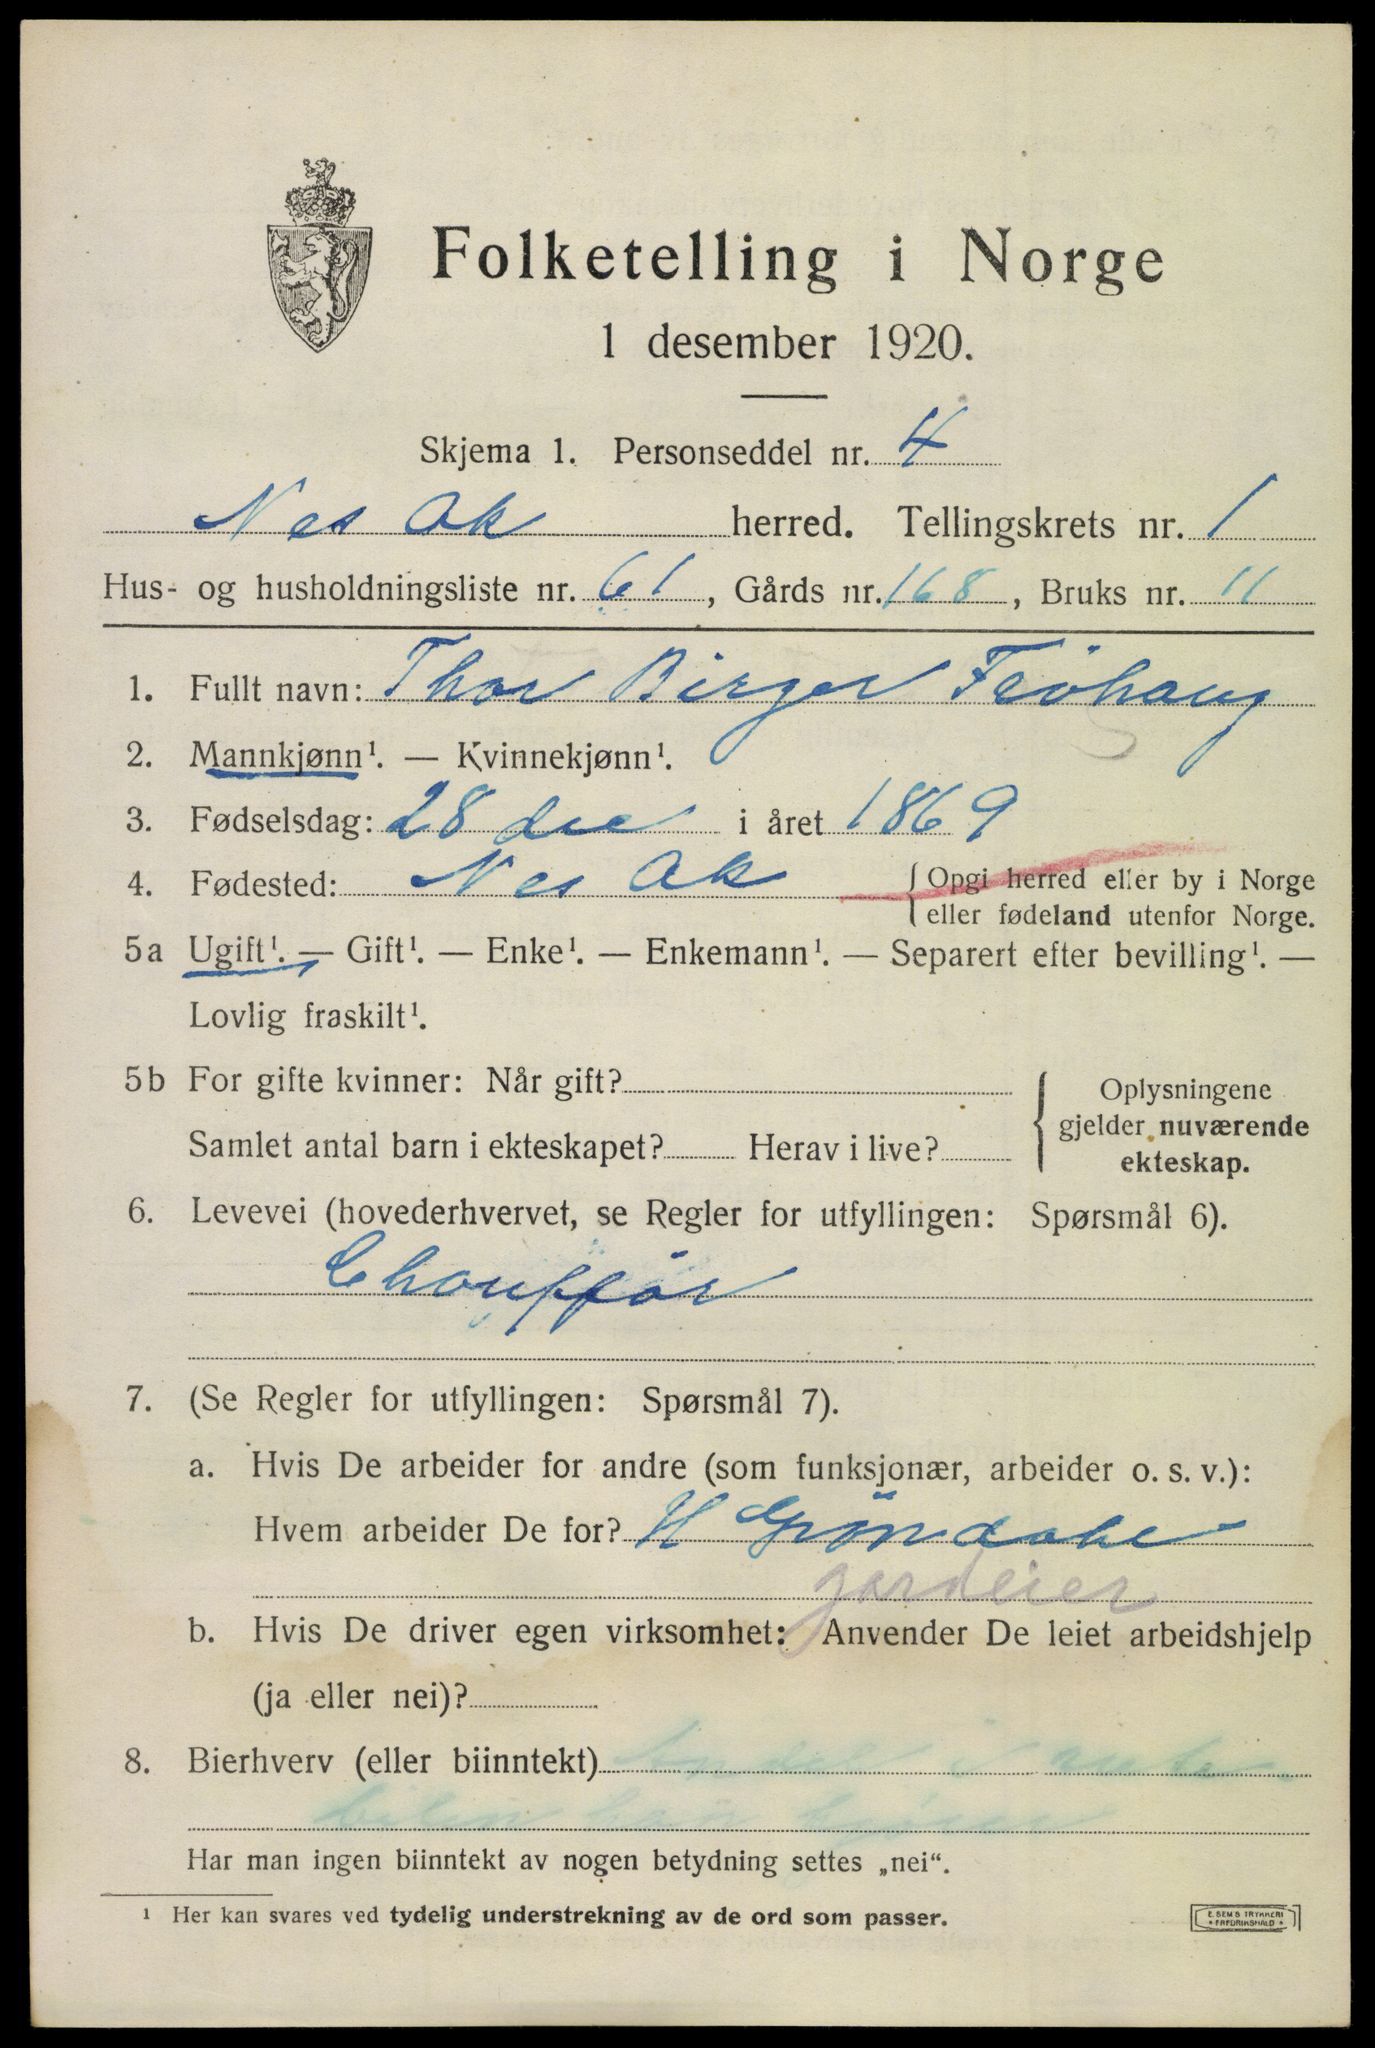 Folketelling i Norge
1 desember 1920.
Skjema 1. Personseddel nr. 4
Nes Ak herred. Tellingskrets nr. 1
Hus- og husholdningsliste nr. 61, Gårds nr. 168, Bruks nr. 11
1. Fullt navn: Thor Birger
2. Mannkjønn¹. — Kvinnekjønn¹.
3. Fødselsdag: 28 dec i året 1869
4. Fødested: Nes Ak { Opgi herred eller by i Norge
eller fødeland utenfor Norge.
5a Ugift¹. — Gift¹. — Enke¹. — Enkemann¹. — Separert efter bevilling¹. —
Lovlig fraskilt¹.
5b For gifte kvinner: Når gift?
Samlet antal barn i ekteskapet? Herav i live?
{ Oplysningene
gjelder nuværende
ekteskap.
6. Levevei (hovederhvervet, se Regler for utfyllingen: Spørsmål 6).
Choufför
7. (Se Regler for utfyllingen: Spørsmål 7).
a. Hvis De arbeider for andre (som funksjonær, arbeider o. s. v.):
Hvem arbeider De for? H Gröndahl
gardeier
b. Hvis De driver egen virksomhet: Anvender De leiet arbeidshjelp
(ja eller nei)?
8. Bierhverv (eller biinntekt) Andel i auto
bilen han kjører
Har man ingen biinntekt av nogen betydning settes „nei“.
¹ Her kan svares ved tydelig understrekning av de ord som passer.
E. SEM'S TRYKKERI
* FREDRIKSHALD *